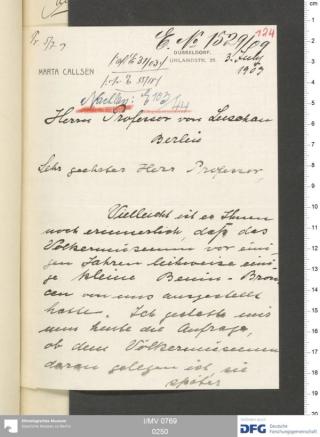 Pr. 5/7 09
E No 1529/09
124
DÜSSELDORF,
UHLANDSTR.
3. July
1909
MARTA CALLSEN
Herrn Professor von Luschau
Berlin
Sehr geehrter Herr Professor,
Vielleicht ist es Ihnen
noch erinnerlich, daß das
Völkermuseum vor eini-
gen Jahren leihweise eini-
ge kleine Benin-Bron-
cen von uns ausgestellt
hatte. Ich gestatte mir
nun heute die Anfrage,
ob dem Völkermuseum
daran gelegen ist, sie
später
Ethnologisches Museum
Staatliche Museen zu Berlin
I/MV 0769
0250
DFG
Deutsche
Forschungsgemeinschaft